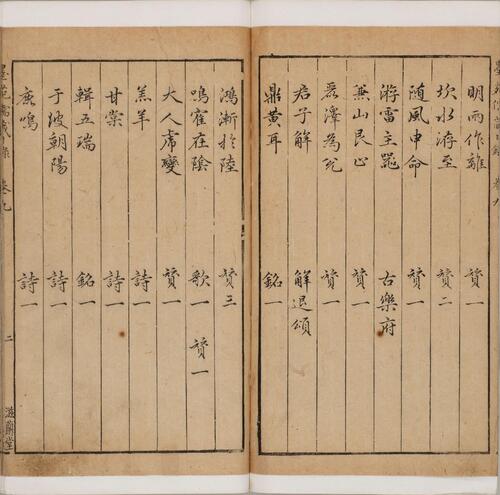 明兩作離 贊一
坎水洊至 贊二
随風申命 贊一
洊雷主鬯 古樂府
兼山艮止 贊一
麗澤為兊 贊一
君子解 解退頌
鼎黃耳 銘一
鴻漸於陸 贊三
鳴隺在陰 歌一 贊一
大人虎變 贊一
羔羊 詩一
甘棠 詩一
輯五瑞 銘一
于彼朝陽 詩一
鹿鳴 詩一
墨苑儒箴錄 卷九 二 滋蘭堂